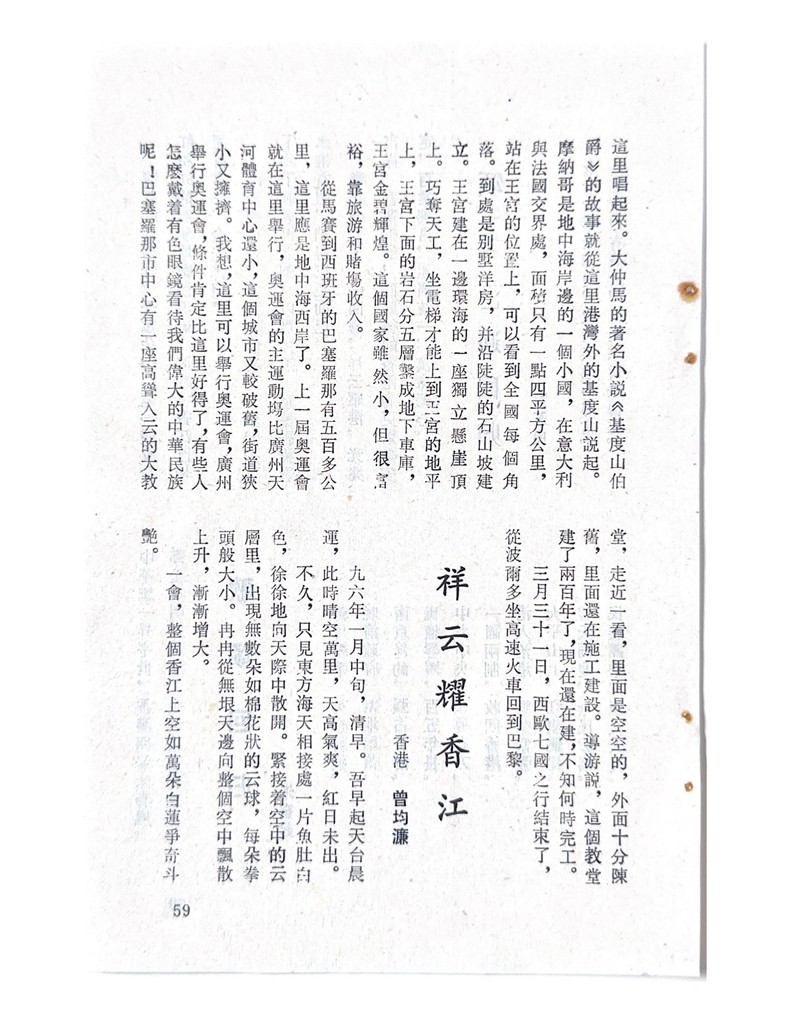 這里唱起來。大仲馬的著名小説《基度山伯
爵》的故事就從這里港灣外的基度山説起。
摩納哥是地中海岸邊的一個小國，在意大利
與法國交界處，面積只有一點四平方公里，
站在王宮的位置上，可以看到全國每個角
落。到處是別墅洋房，并沿陡陡的石山坡建
立。王宮建在一邊環海的一座獨立懸崖頂
上。巧奪天工，坐電梯才能上到王宮的地平
上，王宮下面的岩石分五層鑿成地下車庫，
王宮金碧輝煌。這個國家雖然小，但很富
裕，靠旅游和賭塲收入。
從馬賽到西班牙的巴塞羅那有五百多公
里，這里應是地中海西岸了。上一屆奥運會
就在這里舉行，奥運會的主運動塲比廣州天
河體育中心還小，這個城市又較破舊，街道狹
小又擁擠。我想，這里可以舉行奥運會，廣州
舉行奥運會，條件肯定比這里好得了，有些人
怎麽戴着有色眼鏡看待我們偉大的中華民族
呢！巴塞羅那市中心有一座高聳入云的大教
堂，走近一看，里面是空空的，外面十分陳
舊，里面還在施工建設。導游説，這個教堂
建了兩百年了，現在還在建，不知何時完工。
三月三十一日，西歐七國之行結束了，
從波爾多坐高速火車回到巴黎。
祥云耀香江
香港 曾均濂
九六年一月中旬，清早。吾早起天台晨
運，此時晴空萬里，天高氣爽，紅日未出。
不久，只見東方海天相接處一片魚肚白
色，徐徐地向天際中散開。緊接着空中的云
層里，出現無數朵如棉花狀的云球，每朵拳
頭般大小。冉冉從無垠天邊向整個空中飄散
上升，漸漸增大。
一會，整個香江上空如萬朵白蓮爭奇斗
艷。
59